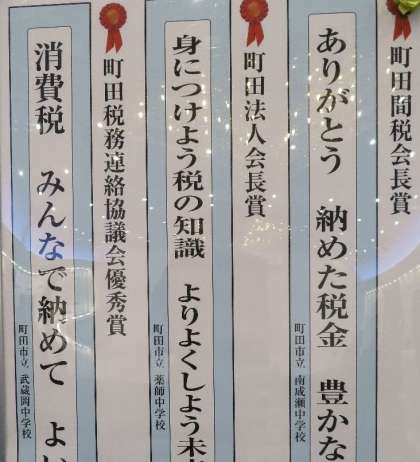 町田間税会長賞
ありがとう 納めた税金 豊かな
町田市立 南成瀬中学校
町田法人会長賞
身につけよう税の知識 よりよくしよう未来
町田市立 薬師中学校
町田税務連絡協議会優秀賞
消費税 みんなで納めて よい
町田市立 武蔵岡中学校